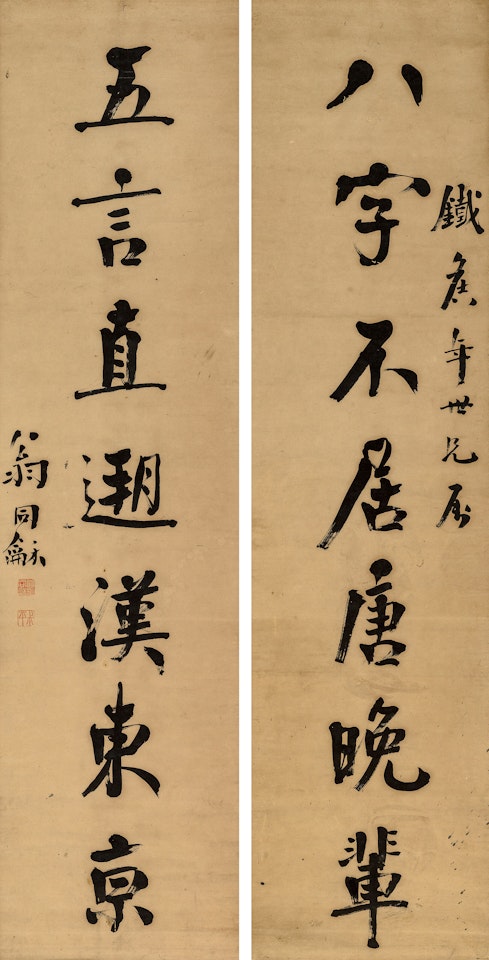 鐵庚年世兄屬
八字不居唐晚輩
五言直遡漢東京
翁同龢